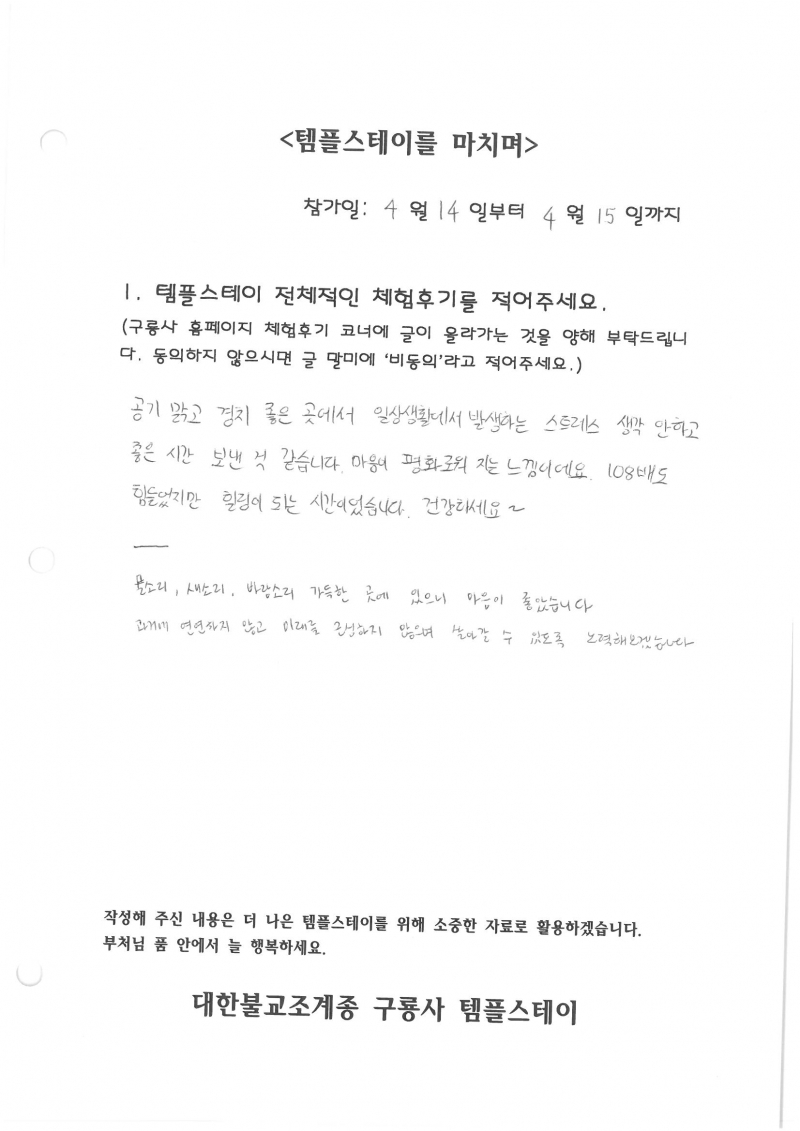 <템플스테이를 마치며>
참가일: 4 월 14 일부터 4 월 15 일까지
1. 템플스테이 전체적인 체험후기를 적어주세요.
(구룡사 홈페이지 체험후기 코너에 글이 올라가는 것을 양해 부탁드립니
다. 동의하지 않으시면 글 말미에 '비동의'라고 적어주세요.)
공기 맑고 경치 좋은 곳에서 일상생활에서 발생하는 스트레스 생각 안하고
좋은 시간 보낸 것 같습니다. 마음이 평화로워 지는 느낌이에요. 108배도
힘들었지만 힐링이 되는 시간이었습니다. 건강하세요~
물소리, 새소리, 바람소리 가득한 곳에 있으니 마음이 좋았습니다
과거에 연연하지 않고 미래를 근심하지 않으며 살아갈 수 있도록 노력해보겠습니다
작성해 주신 내용은 더 나은 템플스테이를 위해 소중한 자료로 활용하겠습니다.
부처님 품 안에서 늘 행복하세요.
대한불교조계종 구룡사 템플스테이